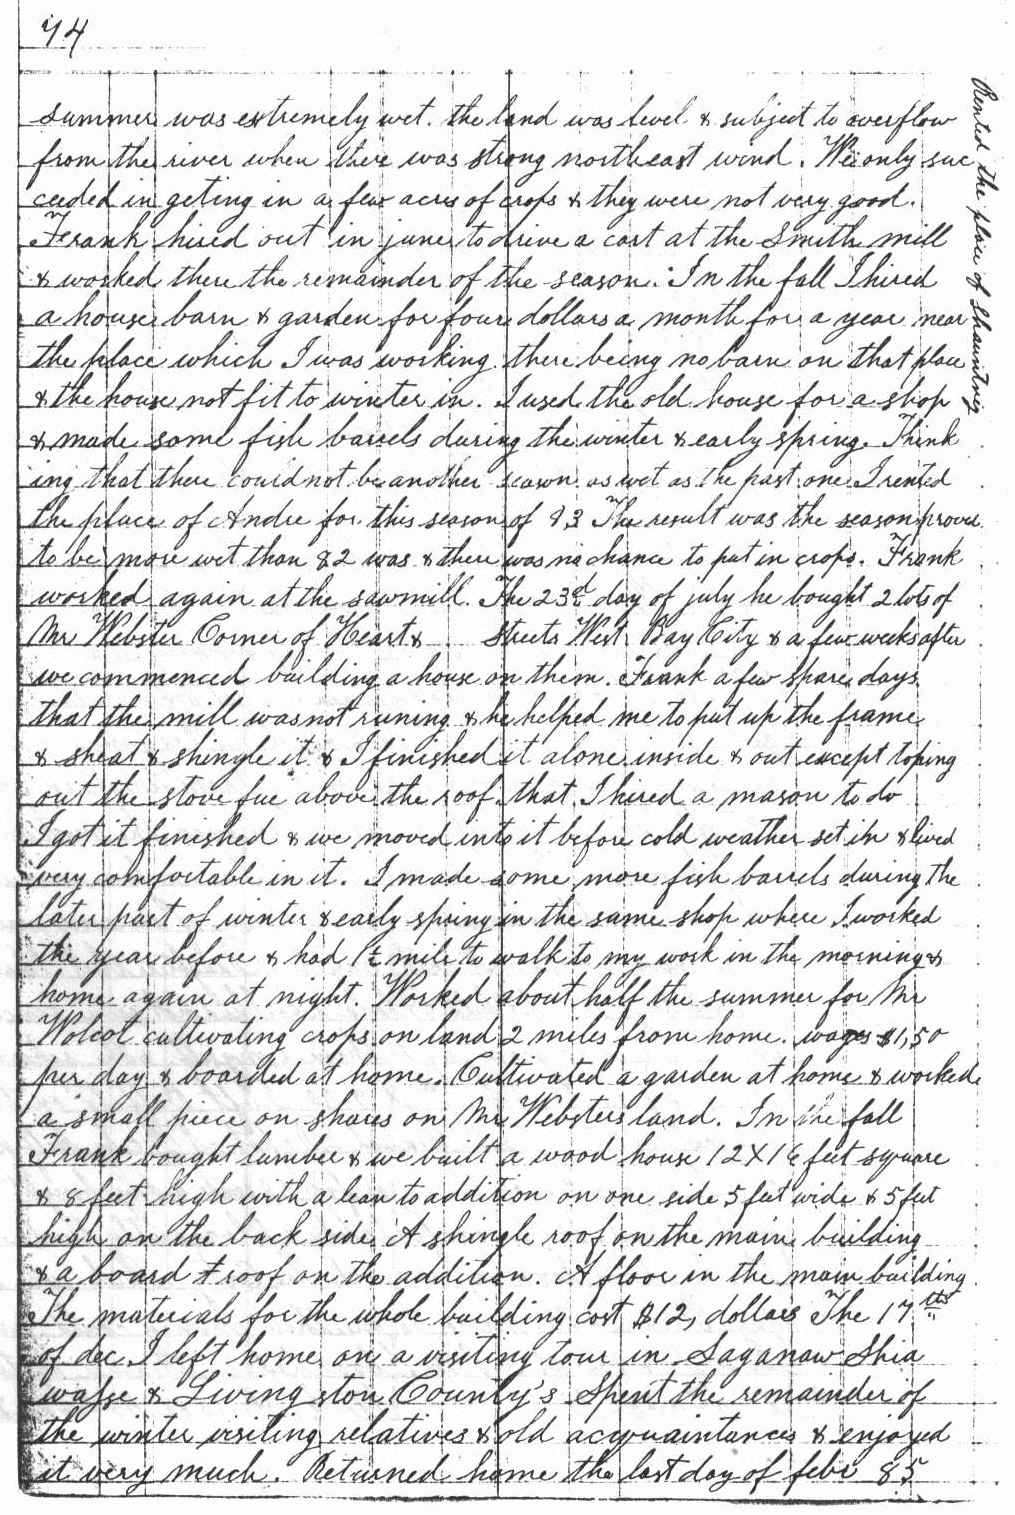 74
summer was extremely wet. the land was level & subject to overflow
from the river when there was strong northeast wind. We only suc
ceeded in geting in a few acres of crops & they were not very good.
Frank hired out in june to drive a cart at the Smith mill
& worked there the remainder of the season. In the fall I hired
a house barn & garden for four dollars a month for a year near
the place which I was working there being no barn on that place
& the house not fit to winter in. I used the old house for a shop
& made some fish barrels during the winter & early spring. Think
ing that there could not be another season as wet as the past one I rented
the place of Andre for this season of 83 The result was the season proved
to be more wet than 82 was & there was no chance to put in crops. Frank
worked again at the sawmill. The 23d day of july he bought 2 lots of
Mr Webster Corner of Heart & Streets West Bay City & a few weeks after
we commenced building a house on them. Frank a few spare days
that the mill was not runing & he helped me to put up the frame
& sheat & shingle it & I finished it alone inside & out except toping
out the stove fue above the roof that I hired a mason to do
I got it finished & we moved into it before cold weather set in & lived
very comfortable in it. I made some more fish barrels during the
later part of winter & early spring in the same shop where I worked
the year before & had 1½ mile to walk to my work in the morning &
home again at night. Worked about half the summer for Mr
Wolcot cultivating crops on land 2 miles from home. wages $1,50
per day & boarded at home. Cultivated a garden at home & worked
a small piece on shares on Mr Websters land. In the fall
Frank bought lumber & we built a wood house 12X16 feet square
& 8 feet high with a lean to addition on one side 5 feet wide & 5 feet
high on the back side A shingle roof on the main building
& a board roof on the addition. A floor in the main building
The materials for the whole building cost $12, dollars The 17th
of dec I left home on a visiting tour in Saganaw Shia
wasse & Livingston County's Spent the remainder of
the winter visiting relatives & old acquaintances & enjoyed
it very much. Returned home the last day of febr 85
Rented the place of